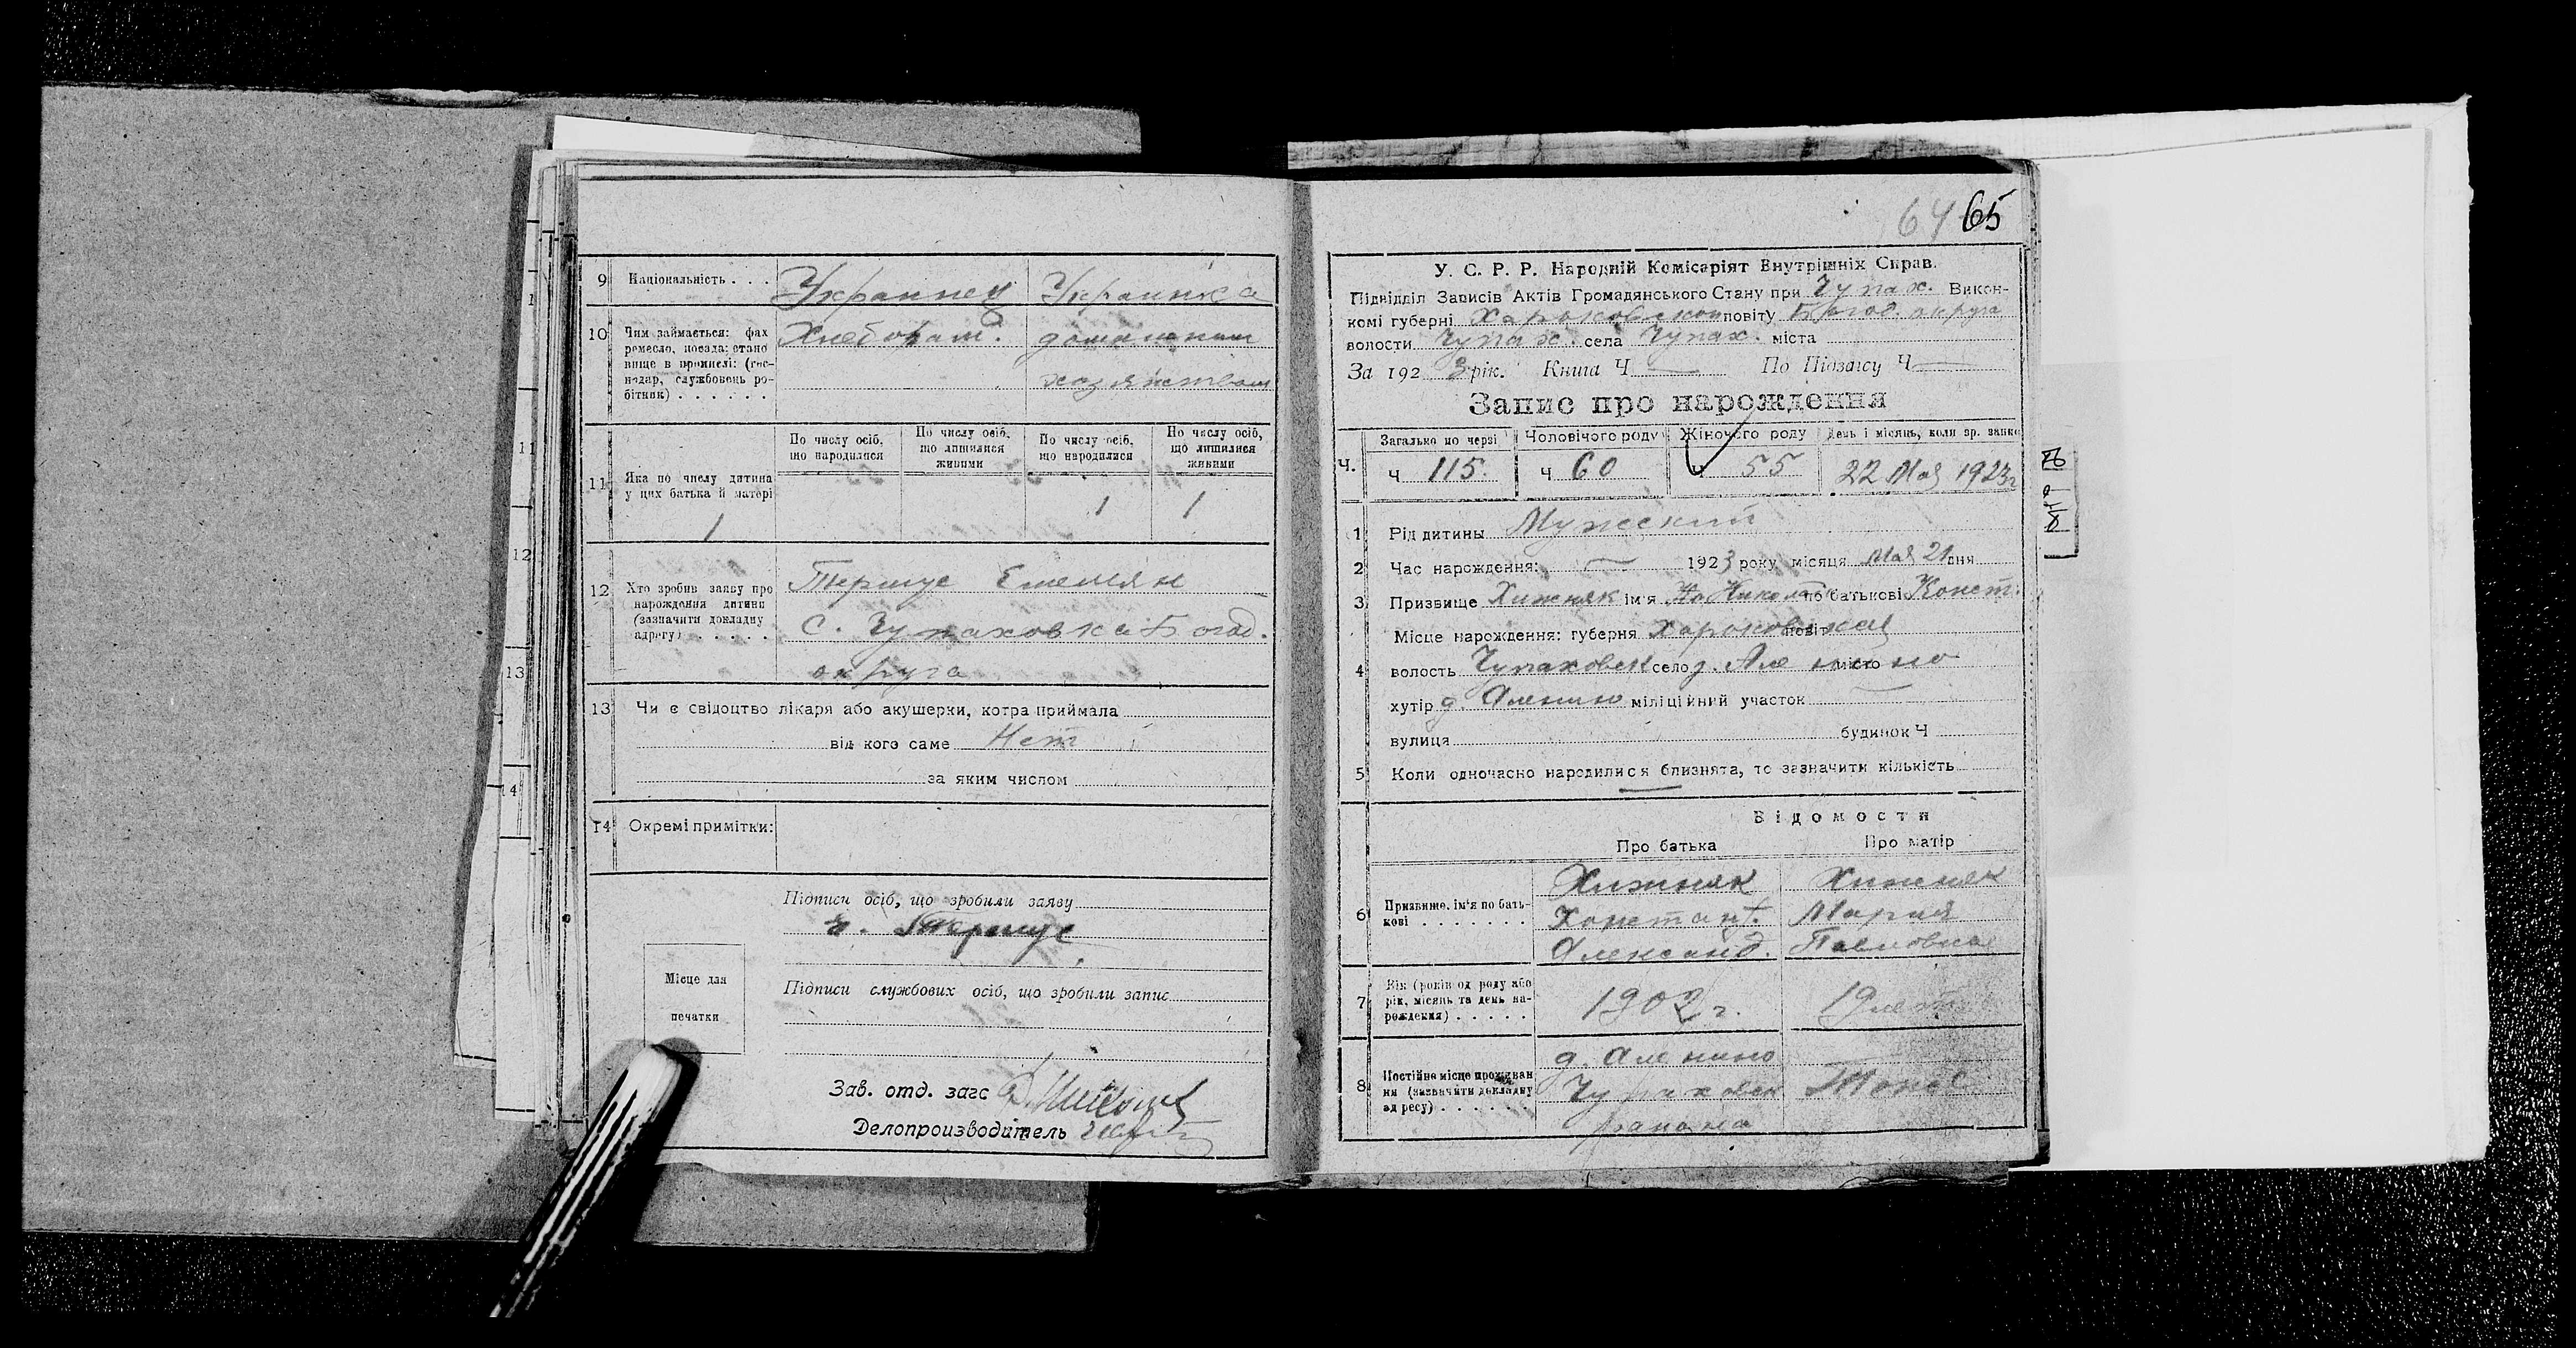 9 Національність . . . Украинец Украинка
10 Чим займається: фах ремесло, посада: стано вище в промислі: (гос- подар, службовець ро- бітник) . . . . . .
Хлебопаш. домашним
хозяйством
11 Яка по числу дитина у цих батька й матері
1
По числу осіб, що народилися
По числу осіб, що лишилися живими
По числу осіб, що народилися
По числу осіб, що лишилися живими
1 1
12 Хто зробив заяву про нарождення дитини (зазначити докладну адресу) . . . . .
Емельян
с. Чупаховка Богод.
округа
13 Чи є свідоцтво лікаря або акушерки, котра приймала
від кого саме Нет
за яким числом
14 Окремі примітки:
Підписи осіб, що зробили заяву
Місце для печатки
Підписи службових осіб, що зробили запис
Зав. отд. загс
Делопроизводитель
11
12
13
4
64 65
У. С. Р. Р. Народній Комісаріят Внутрішніх Справ.
Підвідділ Записів Актів Громадянського Стану при Чупах. Викон-
комі губерні Харьковской повіту Богод. округа
волости Чупах. села Чупах. міста
За 192 3 рік. Книга Ч — По Підзагсу Ч —
Запис про нарождення
Ч.
Загально по черзі Чоловічого роду Жіночого роду День і місяць, коли зр. запис
Ч 115. Ч 60 Ч 55 22 Мая 1923 г
1 Рід дитины Мужеский
2 Час нарождення: — 1923 року місяця Мая 21 дня
3 Призвище Хижняк ім'я Николай по батькові Конст.
Місце нарождення: губерня Харьковская повіт
4 волость Чупаховск село д. Аленино місто
хутір д. Аленино міліційний участок —
вулиця будинок Ч
5 Коли одночасно народилися близнята, то зазначити кількість
Відомости
Про батька Про матір
6 Призвище, ім'я по бать- кові . . . . . . .
Хижняк Хижняк
Константин Мария
Александ. Павловна
7 Вік (років од роду або рік, місяць та день на- рождення) . . . . .
1902 г. 19 лет
8 Постійне місце проживан ня (зазначити докладну адресу) . . . . . .
д. Аленино
Чупаховск Тоже
района